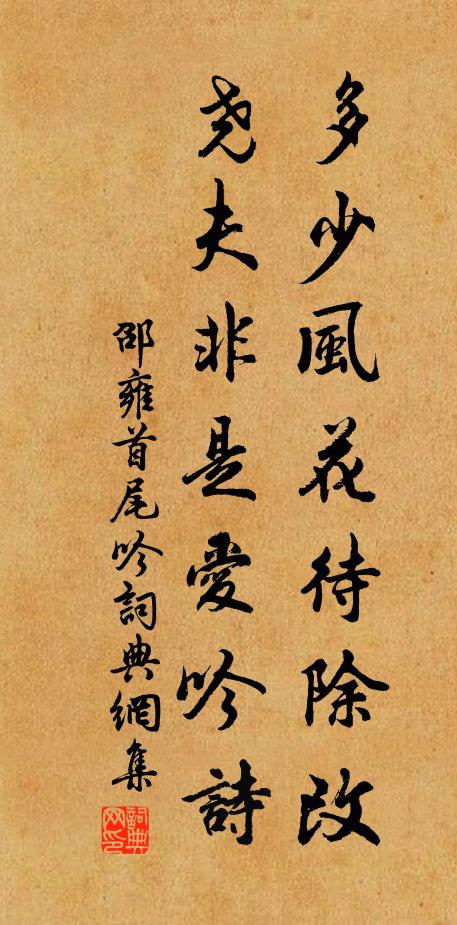 多少風花待除改
尧夫非是愛吟詩
邵雍首尾吟詞典網集
詞典網印